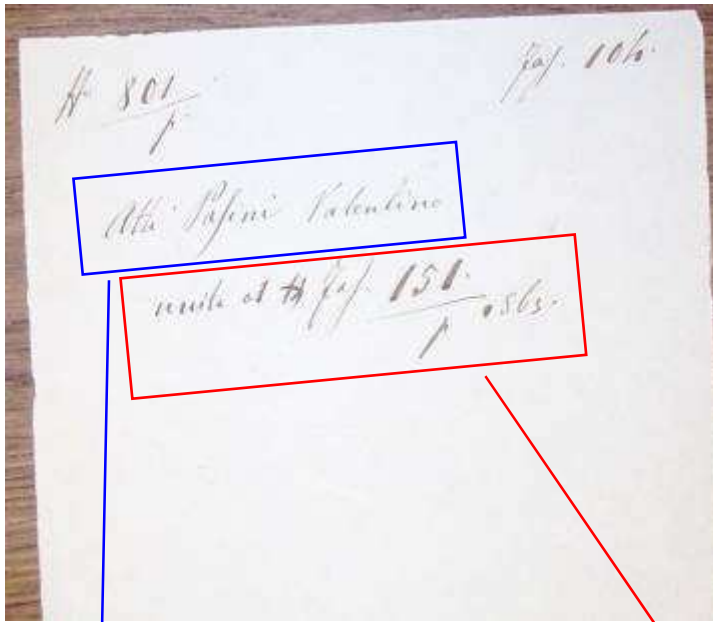 801 fasc. 104.
p
Atti Pasini Valentino
unite al fasc. 151. 1863.
p